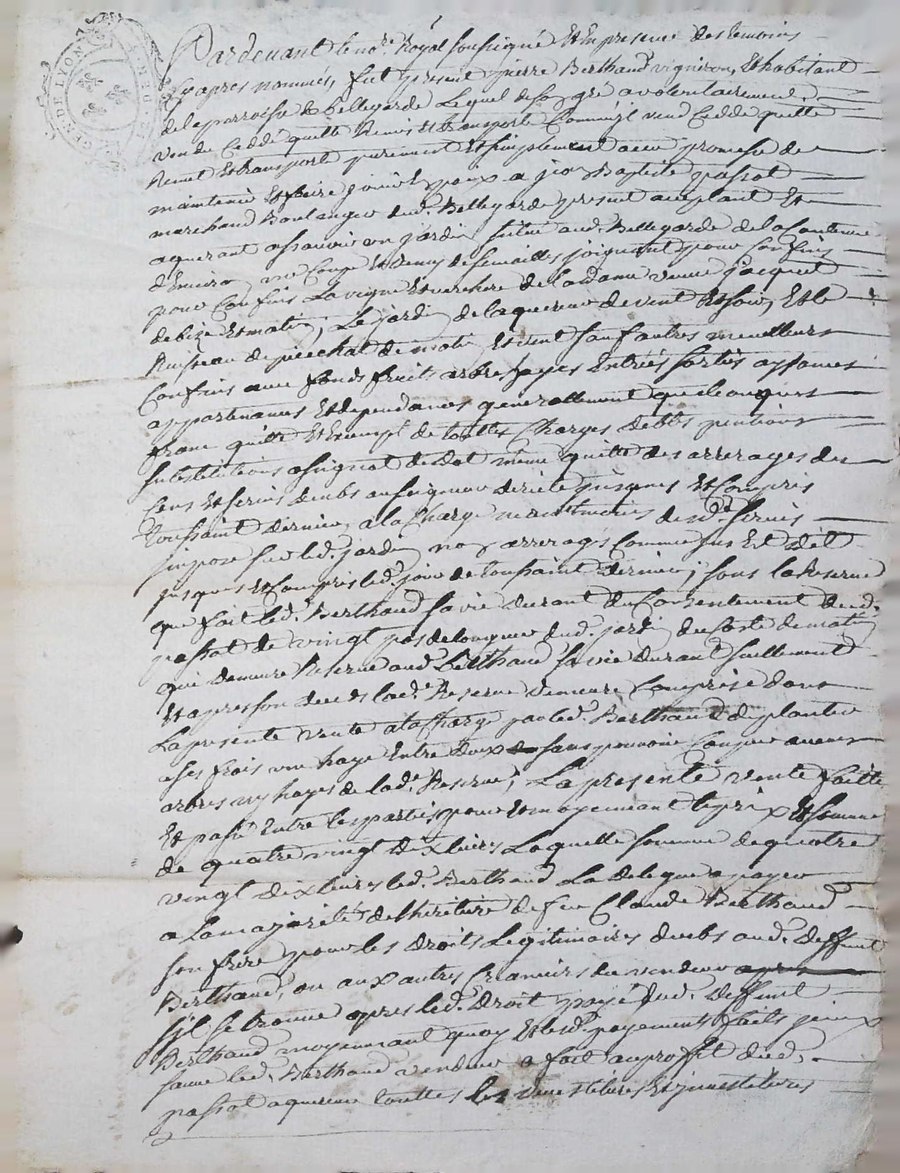 GEN. DE LYON
Pardevant le no.re Royal soussigné Et En presence des temoins
Cy apres nommés, fut present pierre Berthaud vigneron, Et habitant
de la parroisse de Bellegarde Lequel de son gré a volontairement
vendu Ceddé quitté Remis Et transporté Comme il vend Cedde quitte
Remet Et transporte purement Et simplement avec promesse de
maintenir Et faire jouir En paix a jean Baptiste passot
marchand Boulanger dud. Bellegarde present acceptant Et
aquerant assavoir un jardin situé aud. Bellegarde de la Contenue
d'Environ une Coupe Et demy de semailles joignant pour Confins
pour Confins La vigne Et verchere de la dame veuve jacquet
de bize Et matin, Le jardin de laquereur de vent Et soir, Et le
Ruisseau de de matin Et vent sauf autres meilleurs
Confins avec fonds fruits arbres hayes Entrées sorties aysances
appartenances Et dependances generallement quelconques
franc quitte Et Exempt de toutes Charges debtes pentions
substitutions assignat de Dot même quitte des arrerages de
Cens Et servis deubs au seigneur jusques Et Compris
toussaint dernier, a la Charge desd. servis
imposé sur led. jardin non arrerages Comme sus Est Dit
jusques Et Compris led. jour de toussaint dernier; sous la Reserve
que fait led. Berthaud sa vie durant du Consentement dud.
passot de vingt pas de longueur dud. jardin du Costé de matin
qui demeure Reservé aud. Berthaud sa vie durant seullement
Et apres son deceds lad. Reserve demeure Comprise dans
La presente vente a la Charge par led. Berthaud de planter
a ses frais une haye Entre deux sans pouvoir Couper aucuns
arbres ny hayes de lad. Reserve; La presente vente faitte
Et passé Entre les parties pour Et moyennant le prix Et somme
de quatre vingt dix livres Laquelle somme de quatre
vingt dix livres led. Berthaud La delegue a payer
a La majorité de lheritiere de feu Claude Berthaud
son frere pour les Droits Legitimaires deubs aud. deffunt
Berthaud, ou aux autres Creanciers du vendeur
s'il se trouve apres led. Droit payé dud. deffunt
Berthaud moyennant quoy Et lesd. payements faits
led. Berthaud vendeur a fait au proffit dud.
passot aquereur touttes les demestitures Et jnvestitures